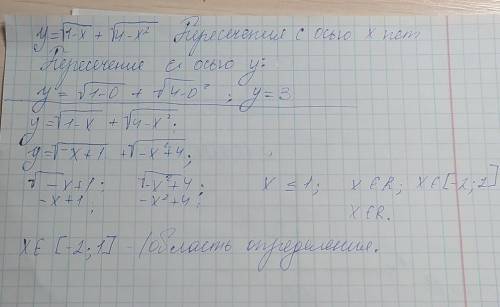 y=√1-x + √4-x² Пересечения с осью x нет
Пересечение с осью y:
y = √1-0 + √4-0² ; y=3
y=√1-x + √4-x²;
y=√-x+1 + √-x²+4;
√-x+1; √-x²+4; x ≤ 1; x∈R; x∈[-2;2]
-x+1; -x²+4; x∈R.
x∈ [-2;1] - область определения.